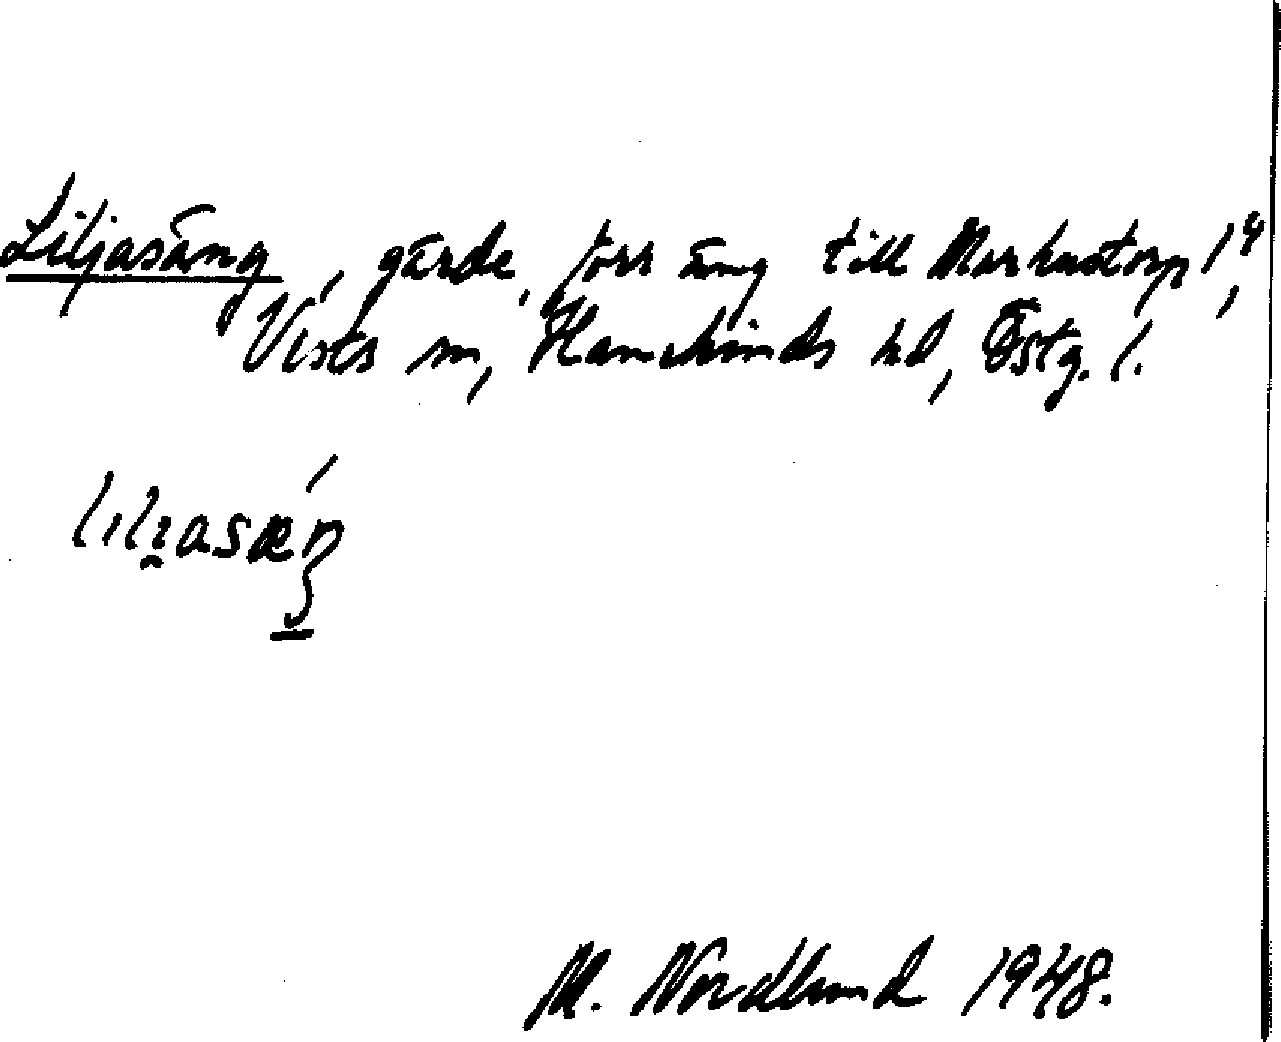 Liljasäng, gärde, förr äng till Markustorp 1⁴,
Vists sn, Hanekinds hd, Östg. l.
M. Nordlund 1948.